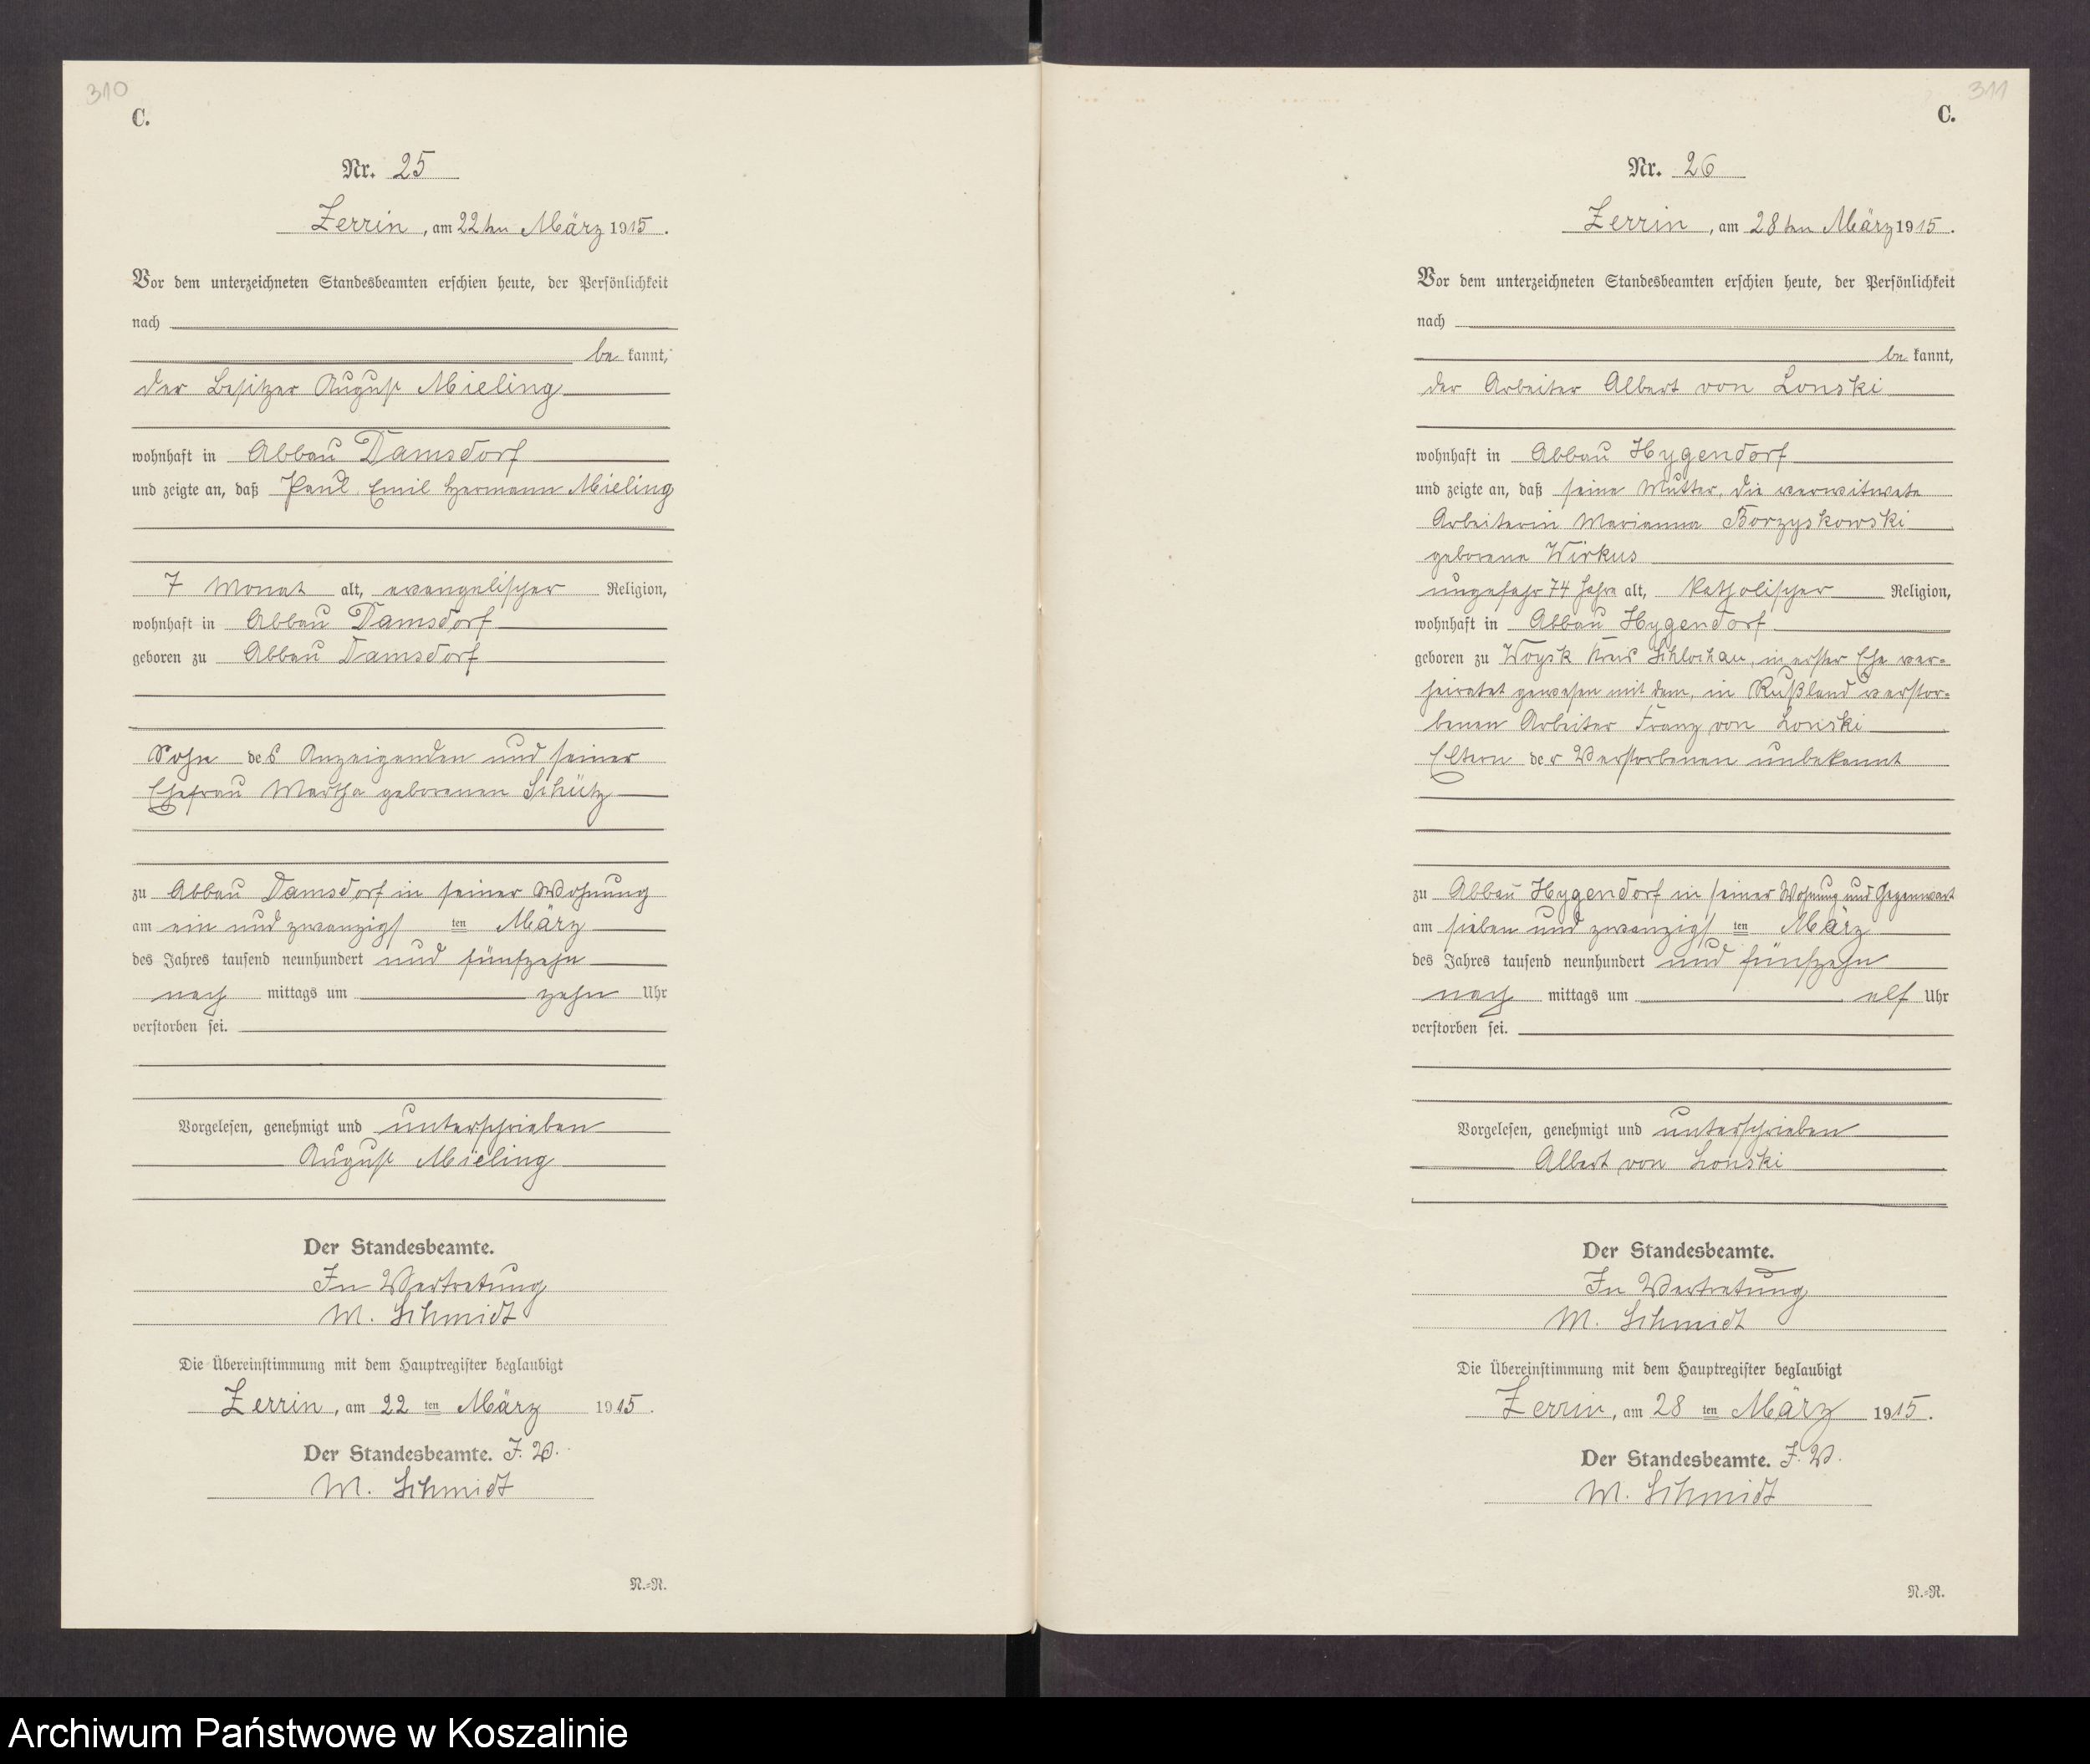 310
C.
Nr. 25
Zerrin, am 22ten März 1915.
Vor dem unterzeichneten Standesbeamten erschien heute, der Persönlichkeit
nach
bekannt,
der Besitzer August Mieling
wohnhaft in Abbau Damsdorf
und zeigte an, daß Paul Emil Hermann Mieling
7 Monat alt, evangelischer Religion,
wohnhaft in Abbau Damsdorf
geboren zu Abbau Damsdorf
Sohn des Anzeigenden und seiner
Ehefrau Martha geborenen Schütz
zu Abbau Damsdorf in seiner Wohnung
am ein und zwanzigsten März
des Jahres tausend neunhundert und fünfzehn
nachmittags um zehn Uhr
verstorben sei.
Vorgelesen, genehmigt und unterschrieben
August Mieling
Der Standesbeamte.
In Vertretung
M. Schmidt
Die Übereinstimmung mit dem Hauptregister beglaubigt
Zerrin, am 22 ten März 1915.
Der Standesbeamte. I. V.
M. Schmidt
N.=N.
311
C.
Nr. 26
Zerrin, am 28ten März 1915.
Vor dem unterzeichneten Standesbeamten erschien heute, der Persönlichkeit
nach
bekannt,
der Arbeiter Albert von Lonski
wohnhaft in Abbau Hygendorf
und zeigte an, daß seine Mutter, die verwitwete
Arbeiterin Marianna Borzyskowski
geborene Wirkus
ungefähr 74 Jahre alt, katholischer Religion,
wohnhaft in Abbau Hygendorf
geboren zu Woysk Kreis Schlochau, in erster Ehe ver=
heiratet gewesen mit dem, in Rußland verstor=
benen Arbeiter Franz von Lonski
Eltern der Verstorbenen unbekannt
zu Abbau Hygendorf in seiner Wohnung und Gegenwart
am sieben und zwanzigsten März
des Jahres tausend neunhundert und fünfzehn
nachmittags um elf Uhr
verstorben sei.
Vorgelesen, genehmigt und unterschrieben
Albert von Lonski
Der Standesbeamte.
In Vertretung
M. Schmidt
Die Übereinstimmung mit dem Hauptregister beglaubigt
Zerrin, am 28 ten März 1915.
Der Standesbeamte. I. V.
M. Schmidt
N.=N.
Archiwum Państwowe w Koszalinie